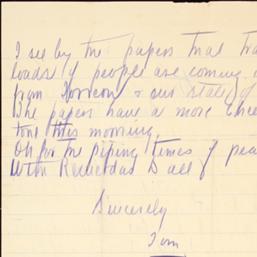 I see by the papers that tra
loads of people are coming
from Torreon & our state of
The papers have a more chee
tone this morning.
Oh for the piping times of pea
With Recuerdas to all
Sincerely
Tom